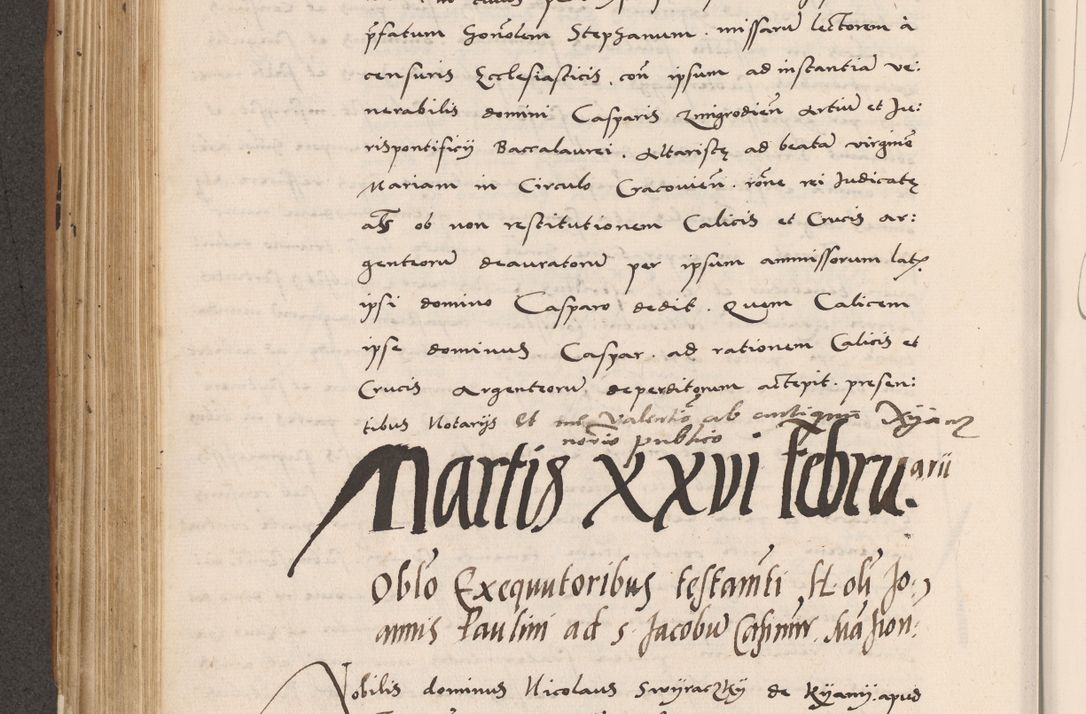 p̄fatum honōlem Stephanum . missarū lectorem à
censuris Ecclesiasticis . coꝝ̄ ipsum ad instantiā ve:
nerabilis domini Casparis Zmigrodien̄ Artiū et Ju:
rispontificij Baccalaurei . Altaristę ad beatā virginē
Mariam in Circulo Cracovien̄ . rōne rei Judicatę
als ob non restitutionem Calicis et Crucis ar:
genteorū deauratorū per ipsum ammissorum lat
ipsi domino Casparo dedit . Quem Calicem
ipse dominus Caspar . ad rationem Calicis et
Crucis Argenteorū deperditorum accepit . presen:
tibus Notarijs et me Valentō ab antiquū Xyanz
norio publico
Martis XXVI Februarii
Oblō Exequutoribus testamti H. oli Jo:
annis Paulini ad s. Jacobū Casimir.
Nobilis dominus Nicolaus Swyraczky de Kyany . apud